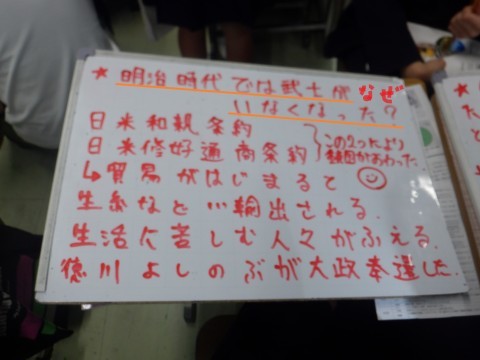 ★ 明治時代では武士がなぜ
いなくなった?
日米和親条約
日米修好通商条約
この2つにより
鎖国がおわった
↳貿易がはじまると
生糸などが輸出される.
生活に苦しむ人々がふえる.
徳川よしのぶが大政奉還した.